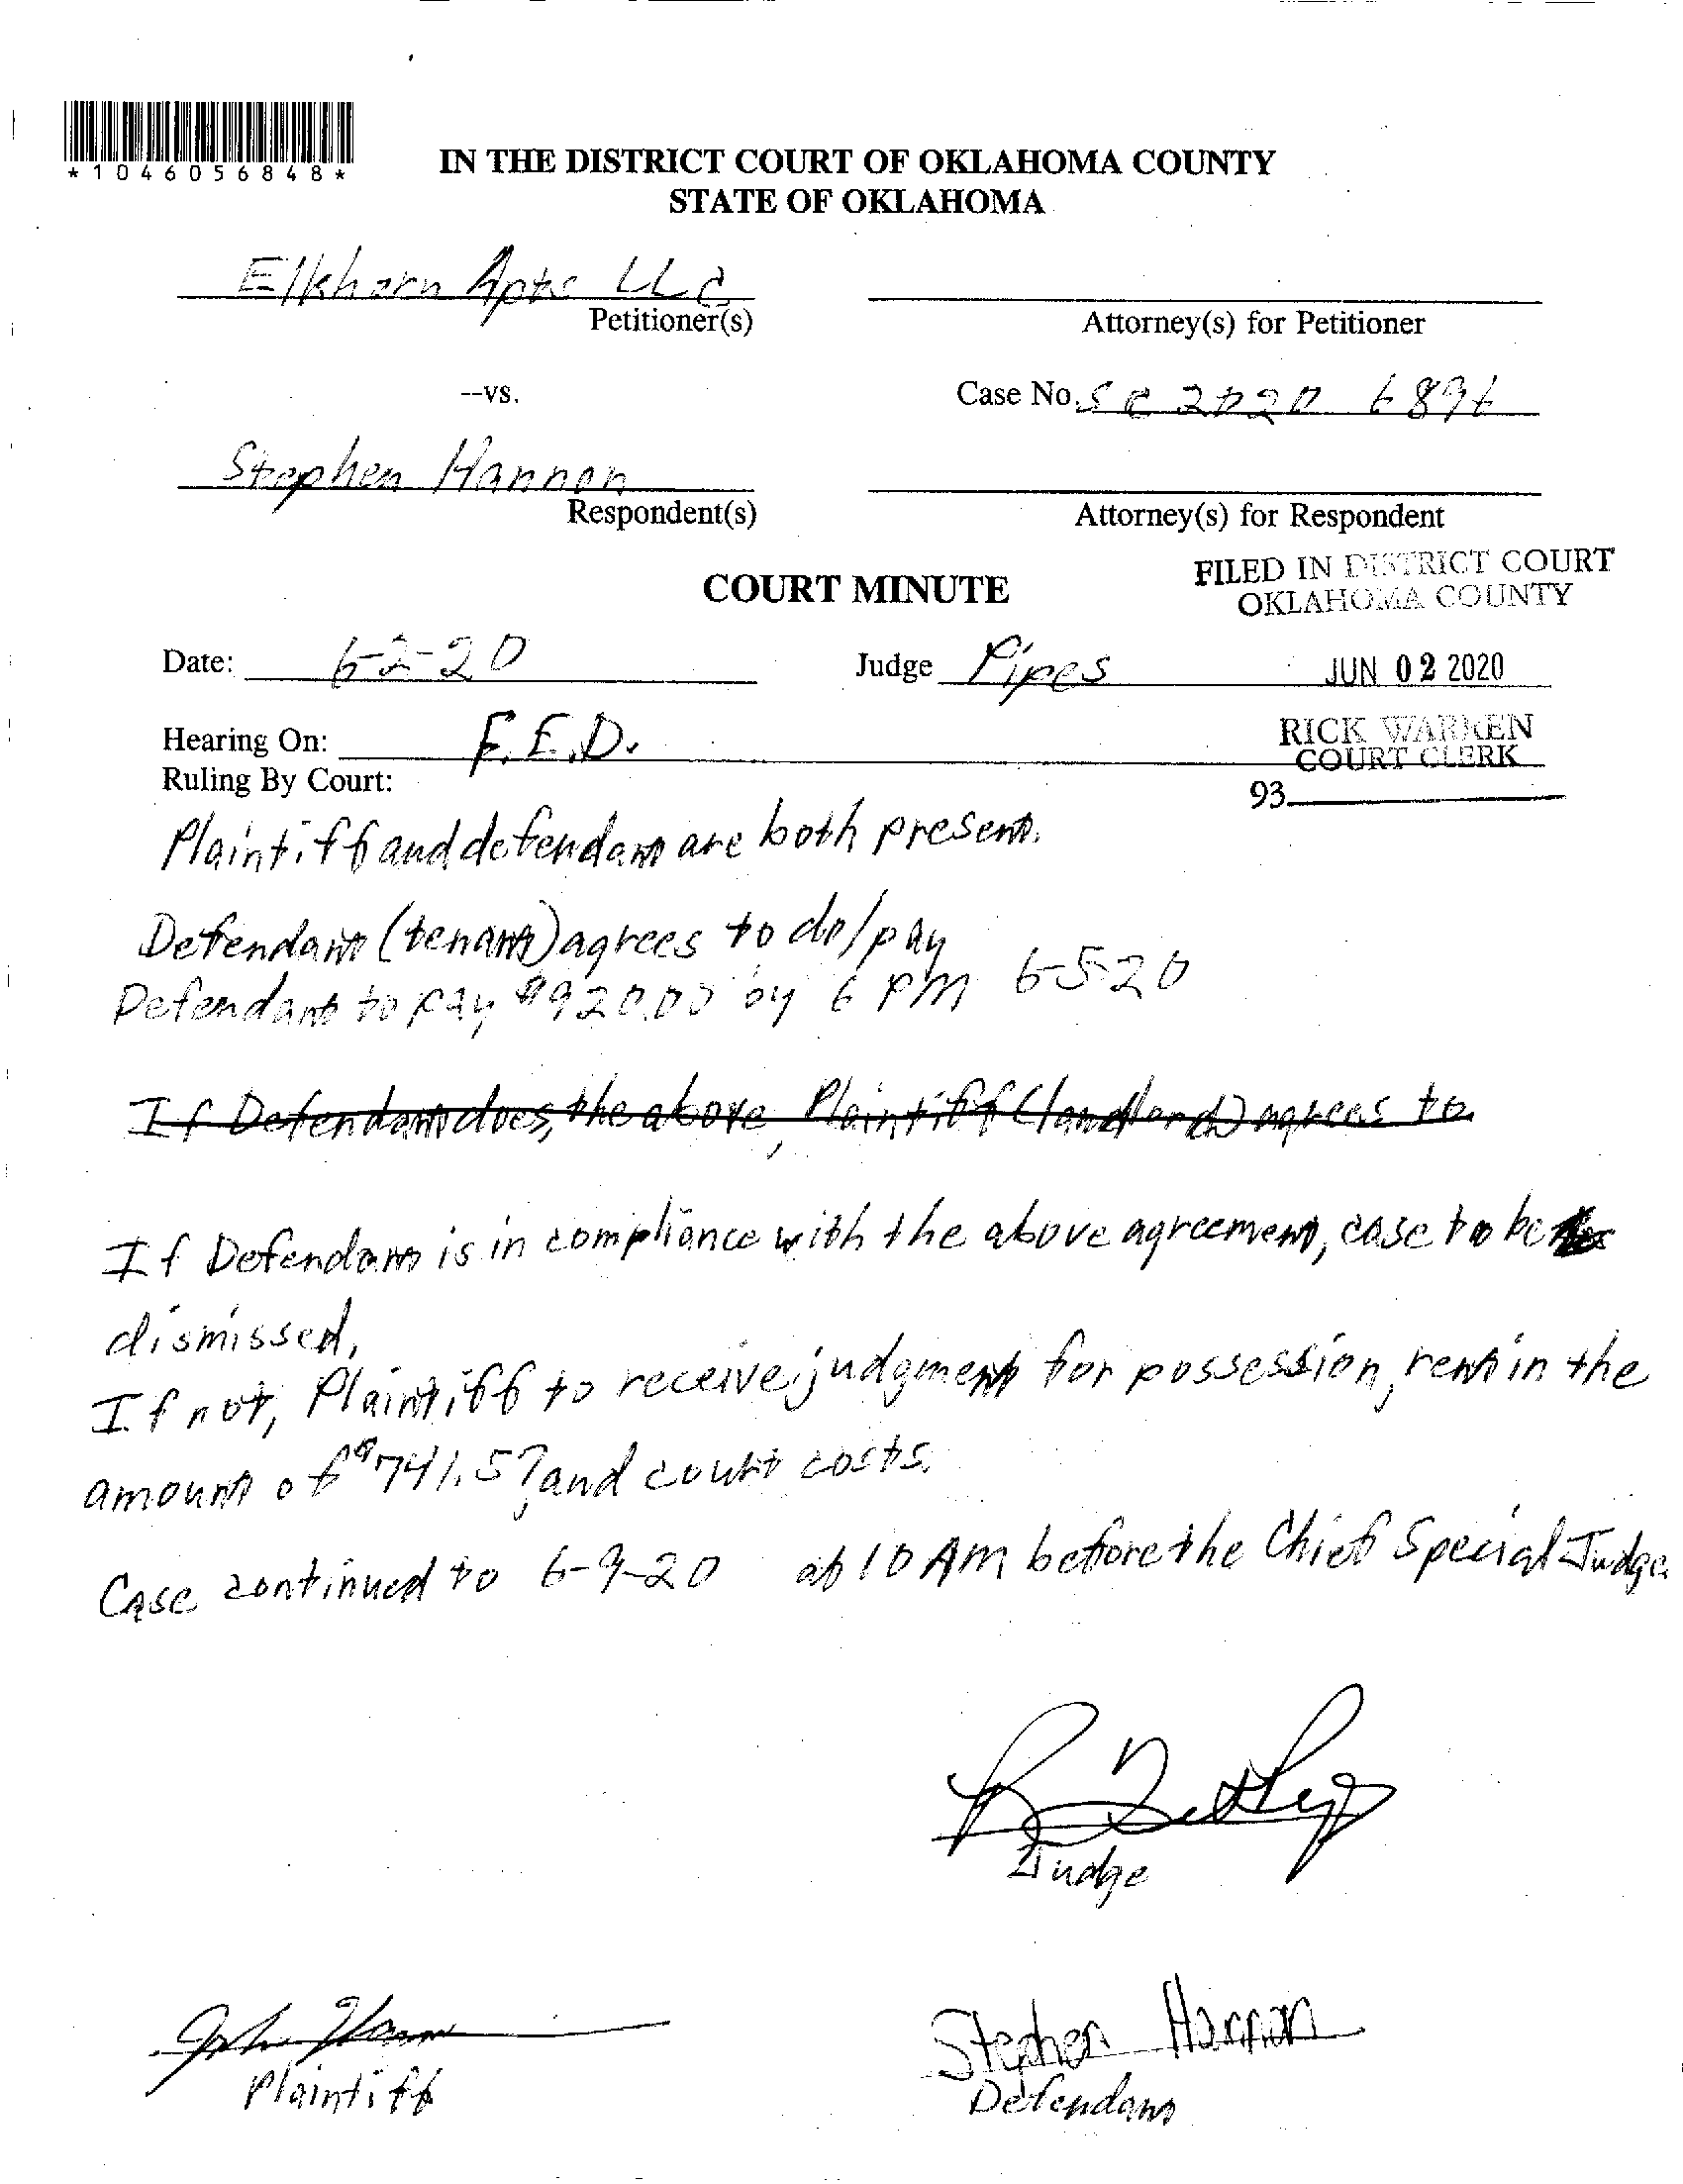 *1046056848*
IN THE DISTRICT COURT OF OKLAHOMA COUNTY
STATE OF OKLAHOMA
Elkhorn Apts LLC
Petitioner(s)
Attorney(s) for Petitioner
--vs.
Case No. SC 2020 6896
Stephen Hannon
Respondent(s)
Attorney(s) for Respondent
COURT MINUTE
FILED IN DISTRICT COURT
OKLAHOMA COUNTY
Date: 6-2-20
Judge Pipes
JUN 02 2020
Hearing On: F.E.D.
RICK WARREN
COURT CLERK
Ruling By Court:
93
Plaintiff and defendant are both present.
Defendant (tenant) agrees to do/pay
Defendant to pay $920.00 by 6 PM 6-5-20
If Defendant does, the above, Plaintiff (landlord) agrees to
If Defendant is in compliance with the above agreement, case to be
dismissed.
If not, Plaintiff to receive judgment for possession, rent in the
amount of $741.57, and court costs.
Case continued to 6-9-20 at 10 AM before the Chief Special Judge
Judge
Plaintiff
Stephen Hannon
Defendant